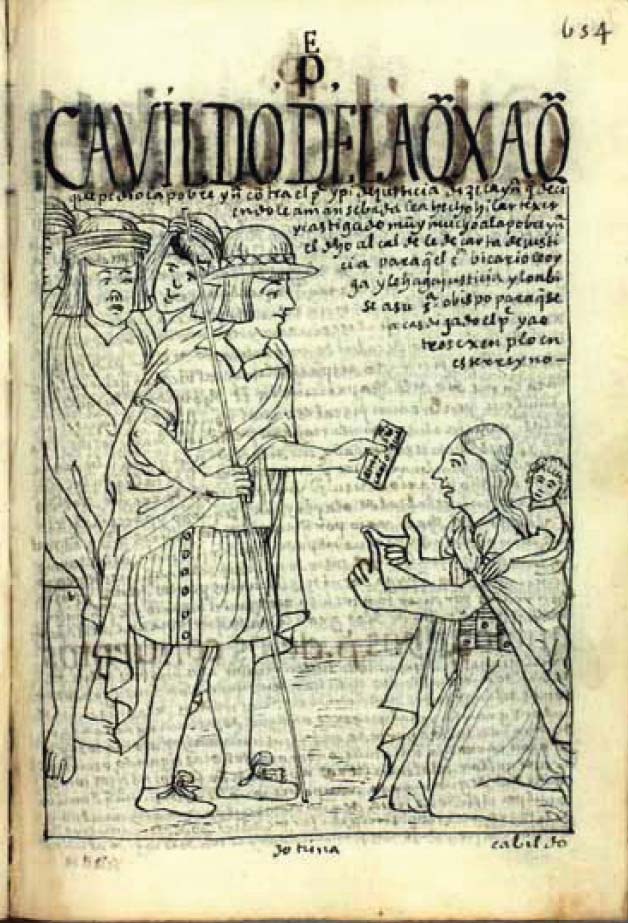 654
E
P.
CAVILDO DE LA Q̃XA Q̃
que pedio la pobre yñ contra el pe ypi de justicia dize la yñ q̃ deci
endole amansebada le a hecho hilar texer
y castigado muy mucho a la pobre yñ
el dho alcalde le de carta de justi
cia para q̃ el sr bicario le oy
ga y le haga justicia y lo abi
se a su sa obispo para q̃ sea
castigado el pe y a o
tros exenplo en
este rreyno —
dotrina
cabildo